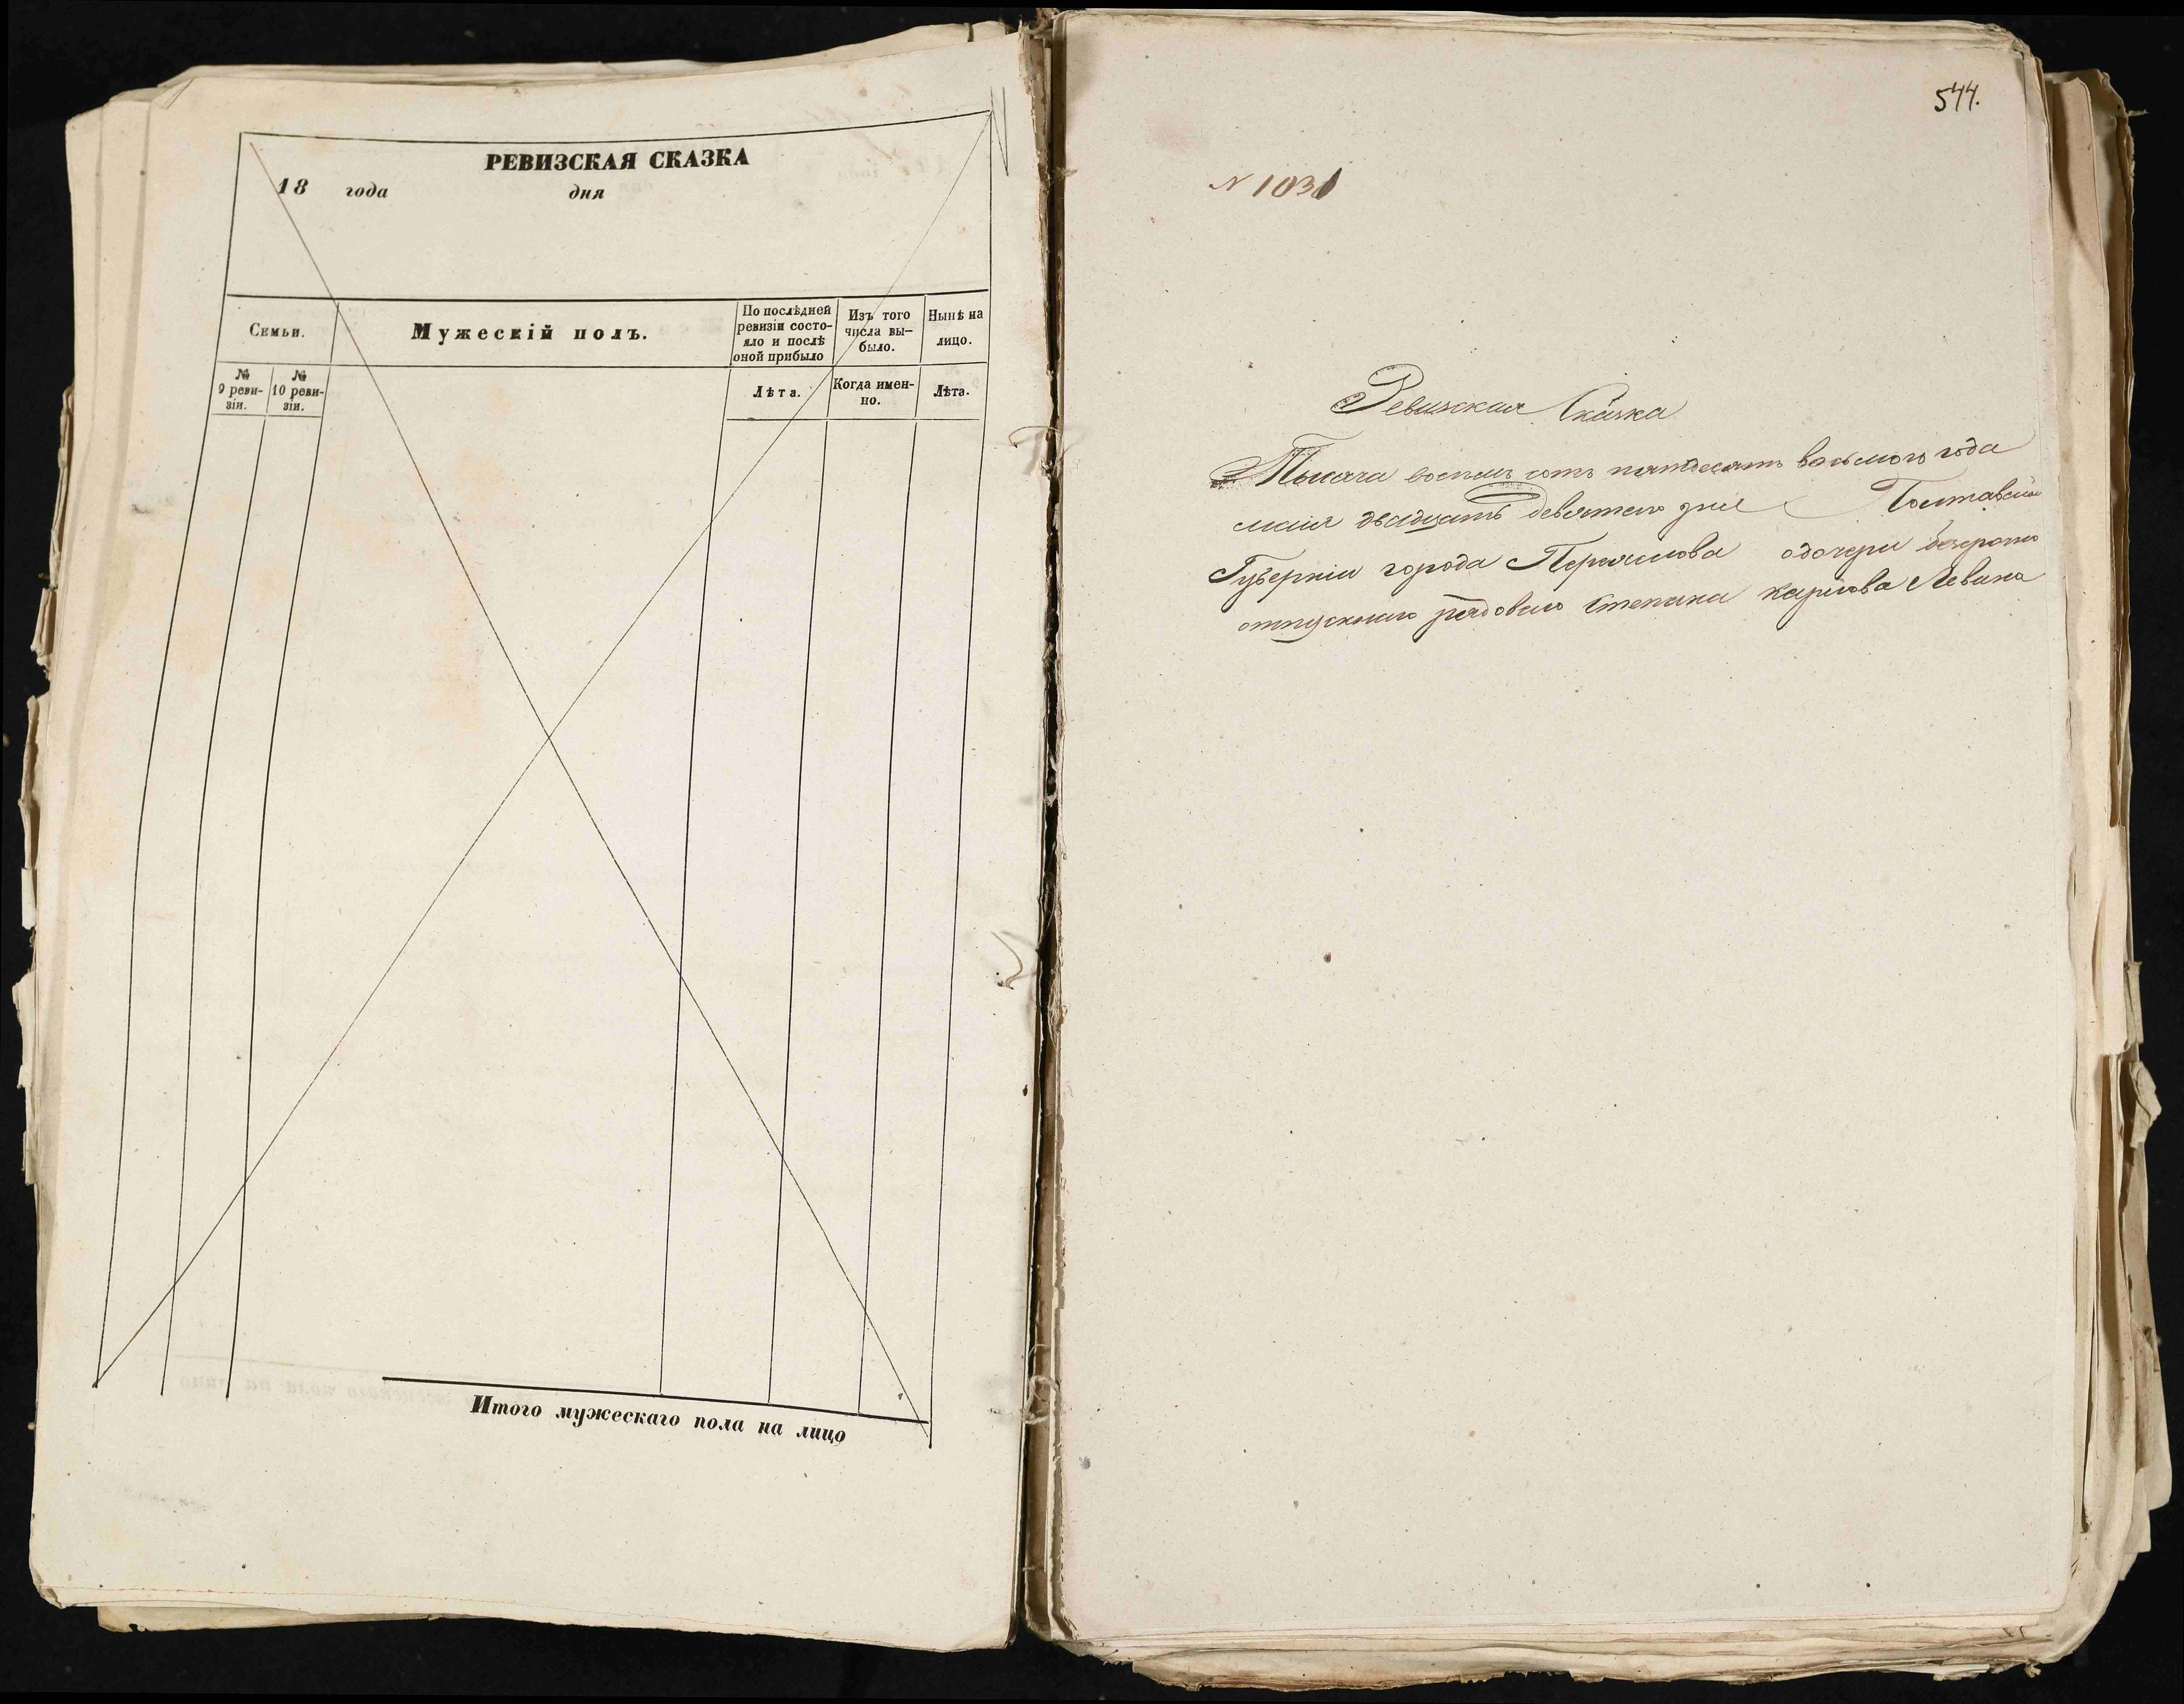 РЕВИЗСКАЯ СКАЗКА
18 года дня
Семьи.
Мужескій полъ.
По послѣдней
ревизіи состо-
яло и послѣ
оной прибыло
Изъ того
числа вы-
было.
Нынѣ на
лицо.
№
9 реви-
зіи.
№
10 реви-
зіи.
Лѣта.
Когда имен-
но.
Лѣта.
Итого мужескаго пола на лицо
544.
N 1031
Ревизская Сказка
Тысяча восемь сотъ пятдесятъ восьмого года
маія двадцать девятого дня Полтавской
Губерніи города Переяслова одочери безсрочно
отпускного рядового Степана Карпова Левина